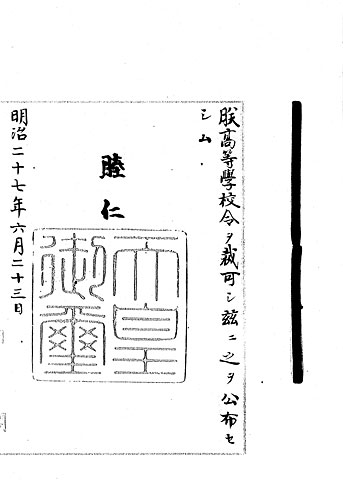 朕高等學校令ヲ裁可シ玆ニ之ヲ公布セ
シム
睦仁
天皇御璽
明治二十七年六月二十三日